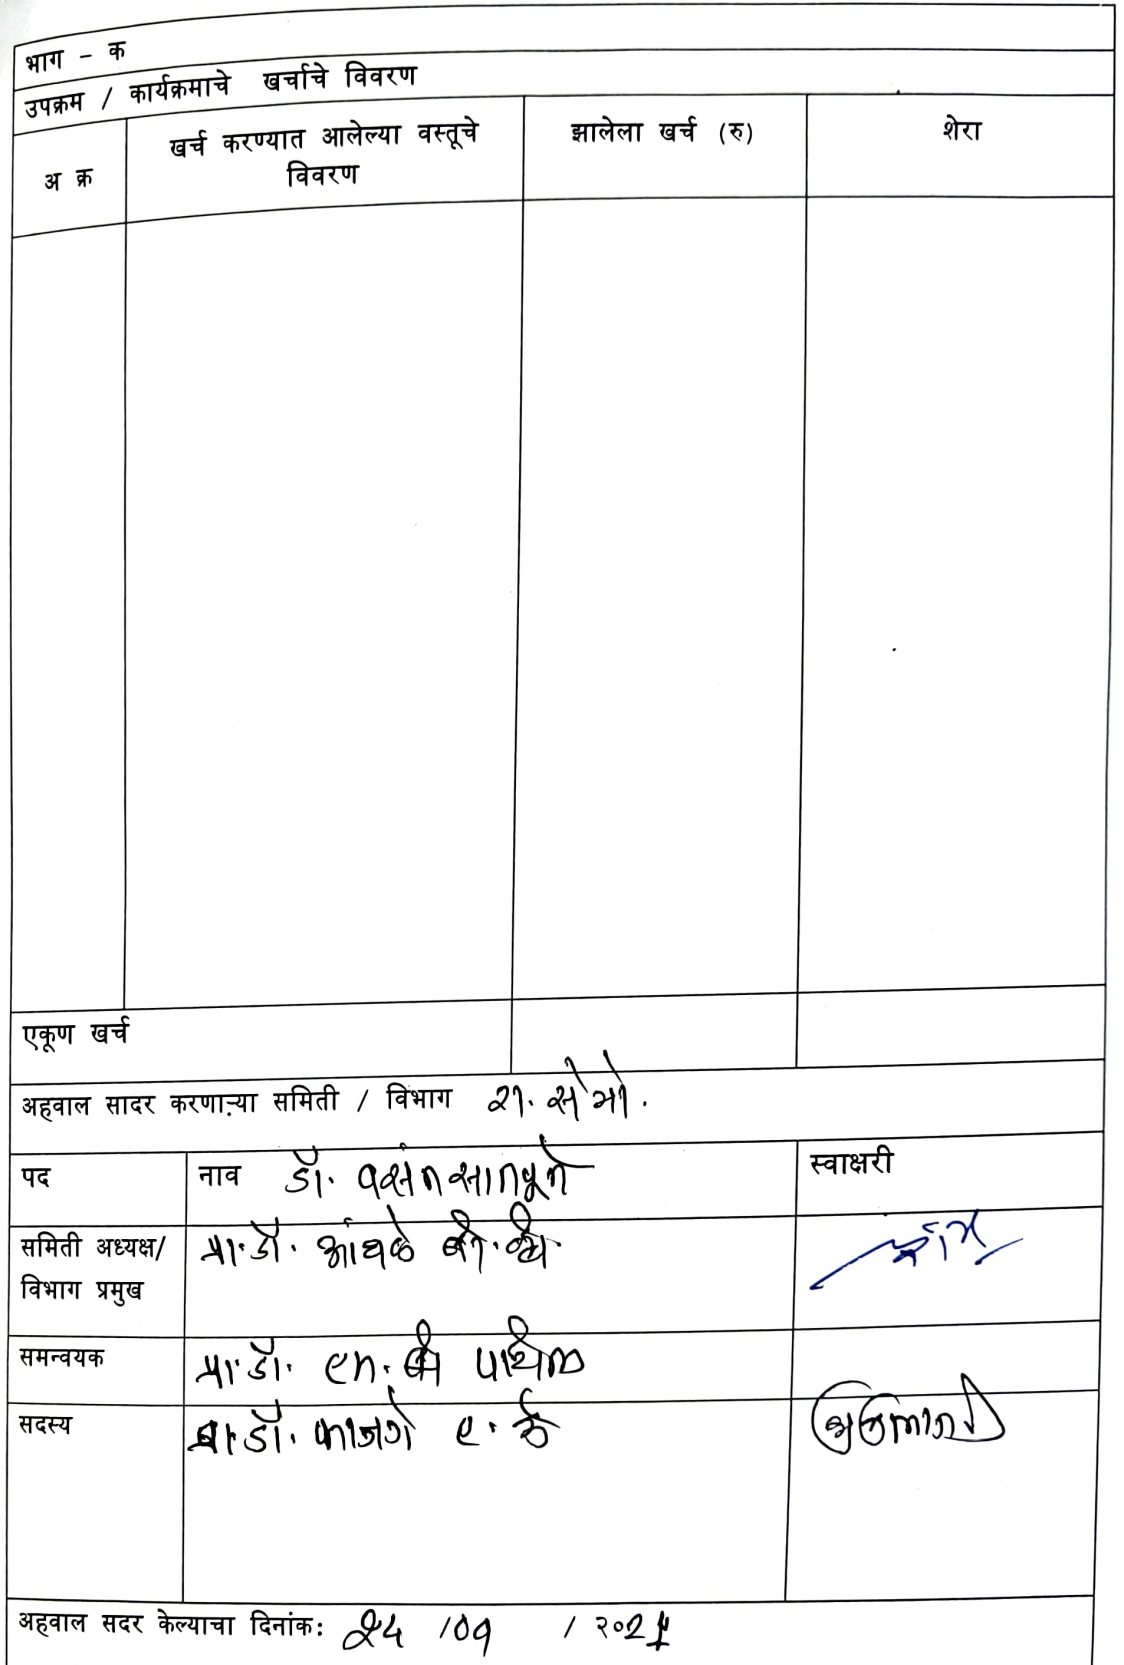 भाग - क
उपक्रम / कार्यक्रमाचे खर्चाचे विवरण
अ क्र
खर्च करण्यात आलेल्या वस्तूचे
विवरण
झालेला खर्च (रु)
शेरा
एकूण खर्च
अहवाल सादर करणाऱ्या समिती / विभाग रा. से यो.
पद
नाव डॉ. वसंत सातपूते
स्वाक्षरी
समिती अध्यक्ष/
विभाग प्रमुख
प्रा.डॉ. आंधळे बी.व्ही.
समन्वयक
प्रा.डॉ. एन. व्ही पाटील
सदस्य
प्रा.डॉ. ए. के
अहवाल सदर केल्याचा दिनांक: २५ /०१ / २०२५